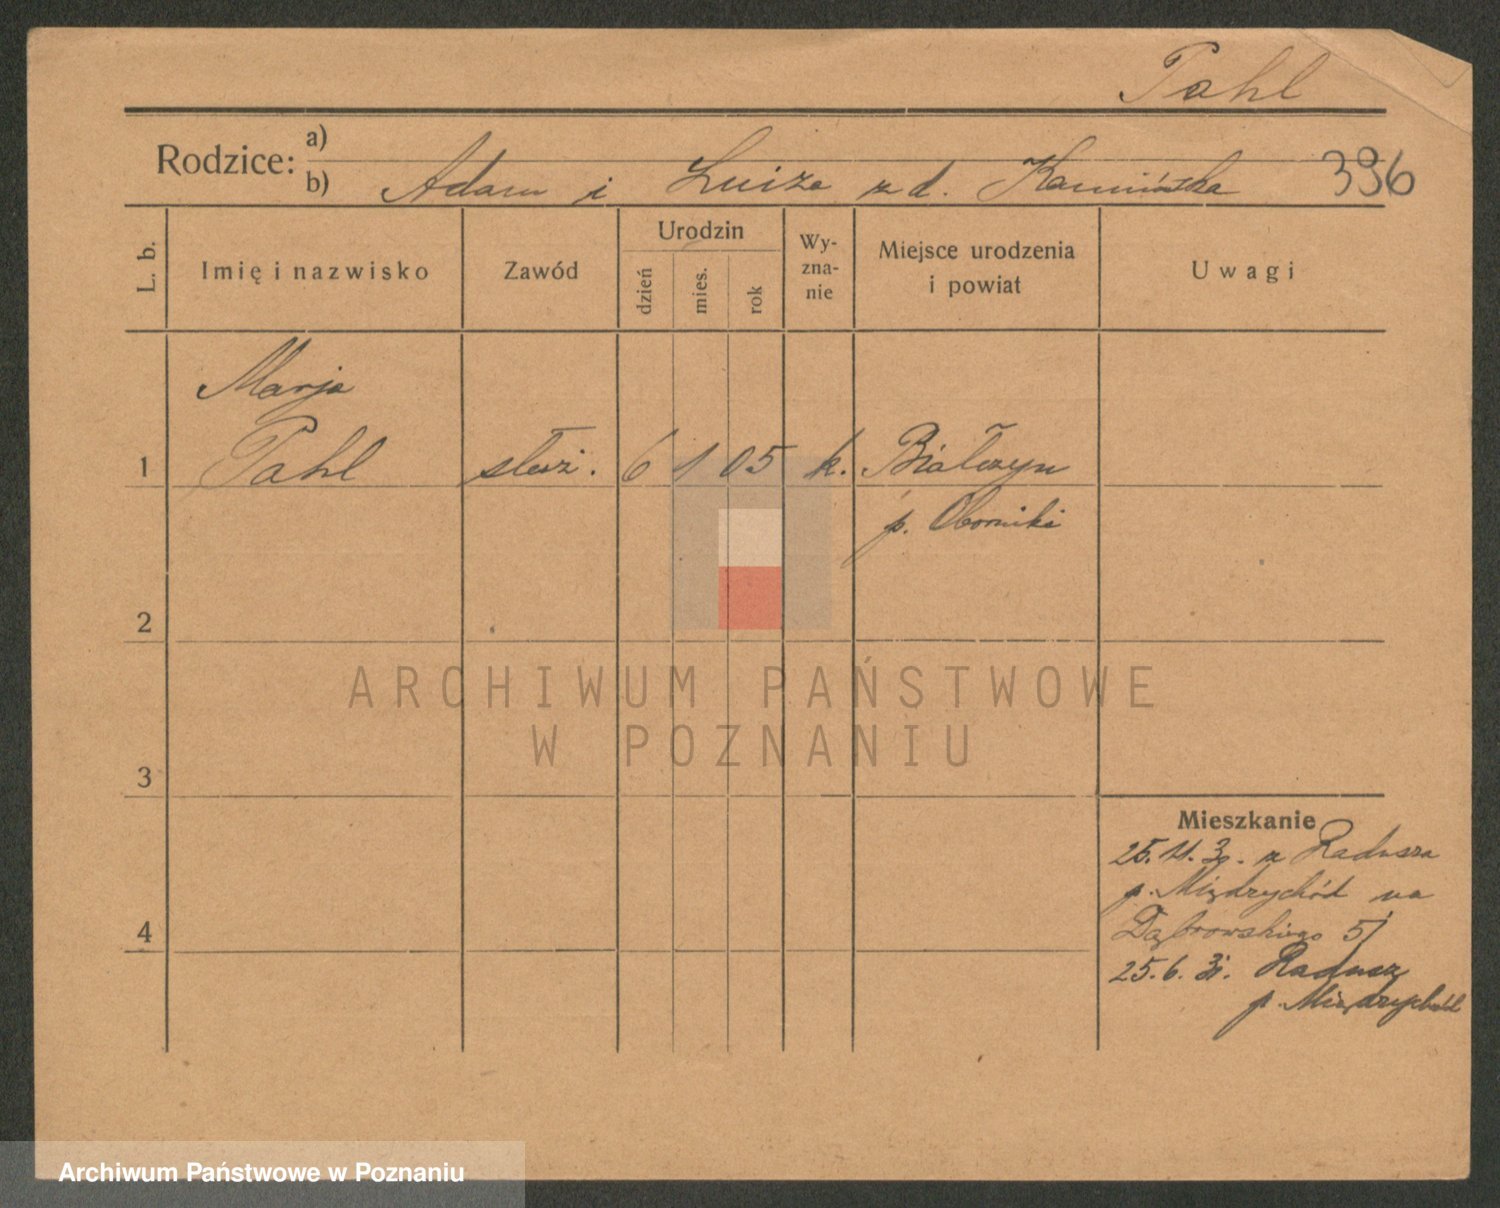 Pahl
Rodzice: a)
b) Adam i Luiza z d. Kamińska 396
L. b. Imię i nazwisko Zawód Urodzin dzień mies. rok Wy-
zna-
nie Miejsce urodzenia
i powiat Uwagi
Marja
1 Pahl służ. 6 1 05 k. Białczyn
p. Oborniki
2
3
4
Mieszkanie
25. 11. 30. z Radusza
p. Międzychód na
Dąbrowskiego 5/
25. 6. 31. Radusz
p. Międzychód
ARCHIWUM PAŃSTWOWE
W POZNANIU
Archiwum Państwowe w Poznaniu